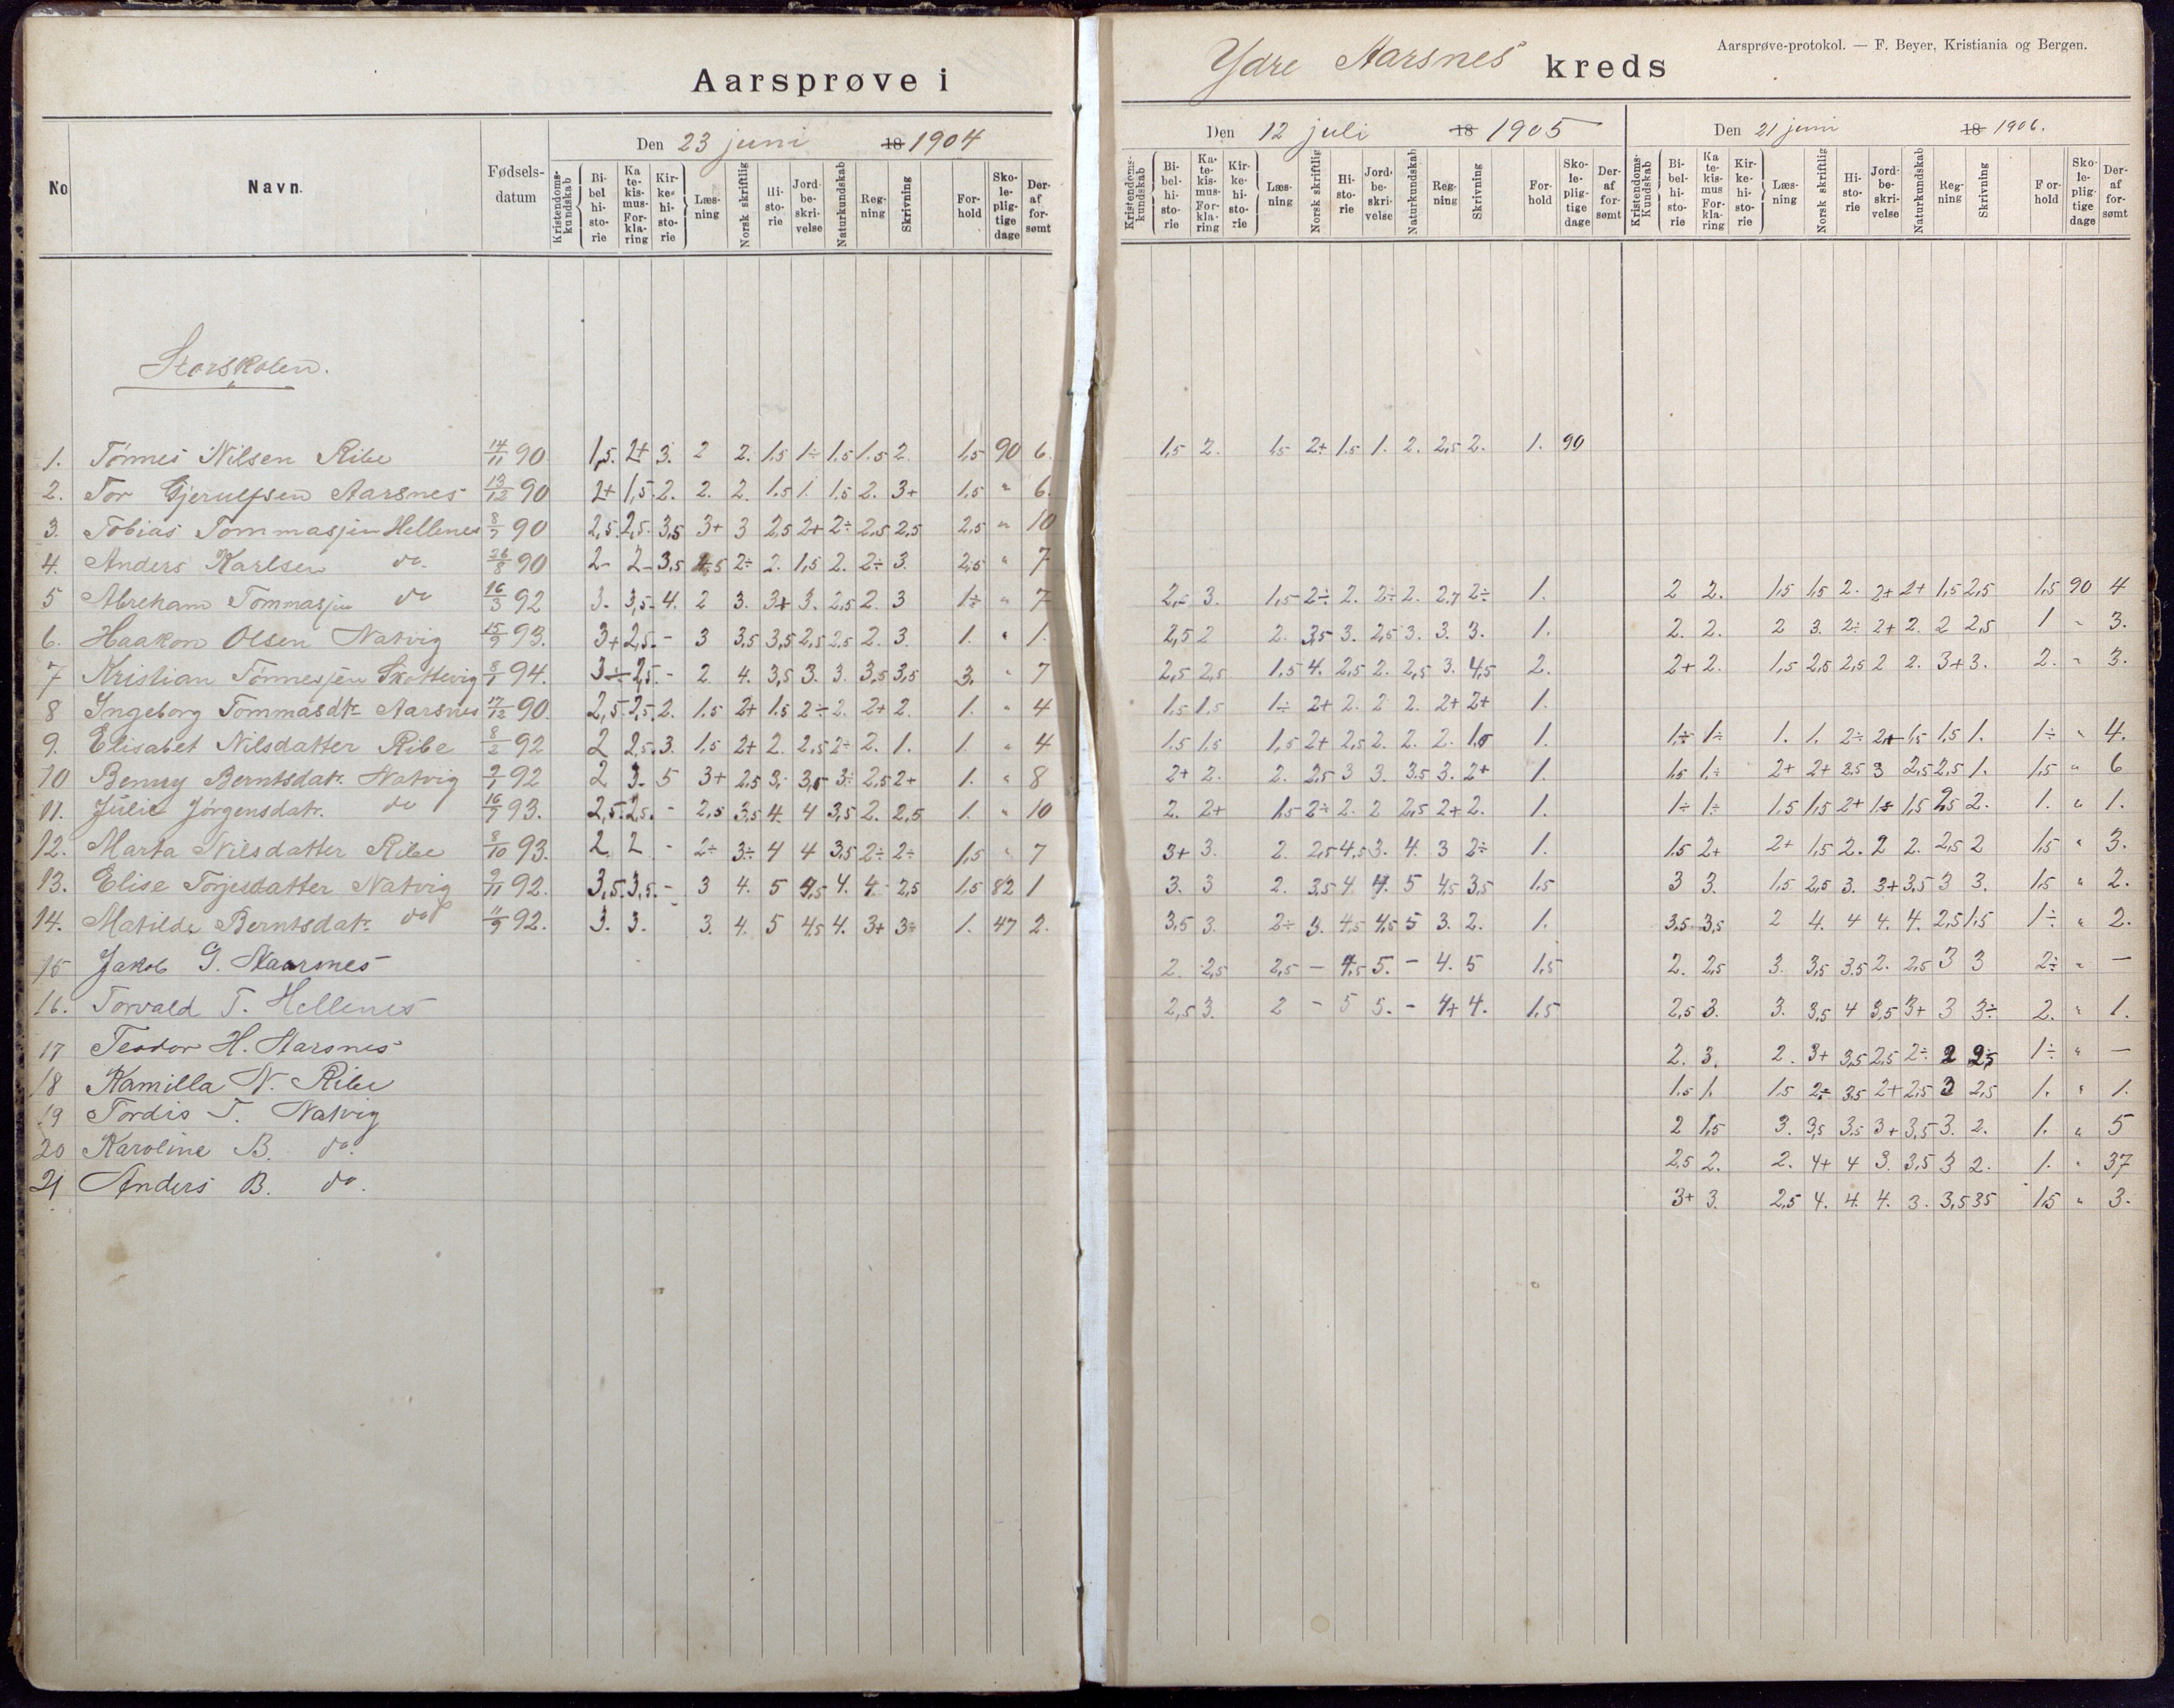 Aarsprøve-protokol. — F. Beyer, Kristiania og Bergen.
Aarsprøve i Ydre Aarsnes kreds
Den 23 juni 18 1904
Den 12 juli 18 1905
Den 21 juni 18 1906.
No Navn. Fødsels-datum Kristendoms-kundskab Bi-bel hi-sto-rie Ka-te-kis-mus-For-kla-ring Kir-ke-hi-sto-rie Læs-ning Norsk skriftlig Hi-sto-rie Jord-be-skri-velse Naturkundskab Reg-ning Skrivning For-hold Sko-le-plig-tige dage Der-af for-sømt
Kristendoms-kundskab Bi-bel-hi-sto-rie Ka-te-kis-mus-For-kla-ring Kir-ke-hi-sto-rie Læs-ning Norsk skriftlig Hi-sto-rie Jord-be-skri-velse Naturkundskab Reg-ning Skrivning For-hold Sko-le-plig-tige dage Der-af for-sømt
Kristendoms-Kundskab Bi-bel-hi-sto-rie Ka te-kis-mus For-kla-ring Kir-ke-hi-sto-rie Læs-ning Norsk skriftlig Hi-sto-rie Jord-be-skri-velse Naturkundskab Reg-ning Skrivning For-hold Sko-le-plig-tige dage Der-af for-sømt
Storskolen.
1. Tönnes Nilsen Ribe 14/11 90 1,5. 2+ 3. 2 2. 1.5 1÷ 1.5 1.5 2. 1,5 90 6. 1,5 2. 1,5 2+ 1.5 1. 2. 2,5 2. 1. 90
2. Tor Gjerulfsen Aarsnes 13/12 90 2+ 1,5. 2. 2. 2. 1.5 1. 1.5 2. 3+ 1,5 " 6.
3. Tobias Tommasjen Hellenes 8/7 90 2,5. 2,5. 3,5 3+ 3 2,5 2+ 2÷ 2,5 2,5 2,5 " 10
4. Anders Karlsen do. 26/8 90 2- 2- 3,5 2÷ 2. 1,5 2. 2÷ 3. 2,5 " 7
5 Abreham Tommasjen do 16/3 92 3. 3,5. 4. 2 3. 3+ 3. 2,5 2. 3 1÷ " 7 3. 1,5 2÷ 2. 2÷ 2. 2÷ 1. 2 2. 1,5 1,5 2. 2+ 2+ 1,5 2,5 1,5 90 4
6. Haakon Olsen Natvig 15/9 93. 3+ 2,5. - 3 3,5 3,5 2,5 2,5 2. 3. 1. " 1. 2,5 2 2. 3,5 3. 2,5 3. 3. 3. 1. 2. 2. 2 3. 2÷ 2+ 2. 2 2,5 1 " 3.
7 Kristian Tönnesjen Skottevig 8/1 94. 3÷ 2,5. - 2. 4. 3,5 3. 3. 3,5 3,5 3. " 7 2,5 2,5 1,5 4. 2,5 2. 2,5 3. 4,5 2. 2+ 2. 1,5 2,5 2,5 2 2. 3+ 3. 2. " 3.
8 Ingeborg Tommasdtr Aarsnes 17/12 90. 2,5. 2,5. 2. 1.5 2+ 1.5 2÷ 2. 2+ 2. 1. " 4 1,5 1,5 1÷ 2+ 2. 2 2. 2+ 2+ 1.
9. Elisabet Nilsdatter Ribe 8/2 92 2 2,5. 3. 1,5 2+ 2. 2,5 2÷ 2. 1. 1. " 4 1,5 1,5 1,5 2+ 2,5 2. 2. 2. 1. 1÷ 1÷ 1. 1. 2÷ 2+ 1,5 1,5 1. 1÷ " 4.
10 Benny Berntsdatr. Natvig 92 2 3. 5 3+ 2.5 3. 3,5 3÷ 2,5 2+ 1. " 8 2+ 2. 2. 2,5 3 3. 3.5 3. 2+ 1. 1,5 1÷ 2+ 2+ 2,5 3 2,5 2,5 1. 1,5 " 6
11. Julie Jörgensdatr. do 16/7 93. 2,5. 2,5. - 2,5 3,5 4. 4 3,5 2. 2,5 1. " 10 2. 2+ 1,5 2÷ 2. 2 2,5 2+ 2. 1. 1÷ 1÷ 1.5 1,5 2+ 1,5 1,5 2,5 2. 1. " 1.
12. Marta Nilsdatter Ribe 8/10 93. 2 2 - 2÷ 3÷ 4 4 3,5 2÷ 2÷ 1,5 " 7 3+ 3. 2. 2,5 4,5 3. 4. 3 2÷ 1. 1.5 2+ 2+ 1,5 2. 2 2. 2,5 2 1,5 " 3.
13. Elise Torjesdatter Natvig 2/11 92. 3,5. 3,5. - 3 4. 5 4,5 4. 4. 2,5 1,5 82 1 3. 3 2. 3,5 4. 4. 5 4,5 3,5 1,5 3 3. 1,5 2,5 3. 3+ 3,5 3 3. 1,5 " 2.
14. Matilde Berntsdatr. do 11/9 92. 3. 3. 3. 4. 5 4,5 4. 3+ 3÷ 1. 47 2. 3,5 3. 2÷ 3. 4,5 4,5 5 3. 2. 1. 3,5 3,5 2 4. 4 4. 4. 2,5 1,5 1÷ " 2.
15 Jakob G. Aarsnes 2. 2,5 2,5 - 4,5 5. - 4. 5 1,5 2. 2,5 3. 3,5 3,5 2. 2,5 3 3 2÷ " —
16. Torvald T. Hellenes 2,5 3. 2 - 5 5. - 4+ 4. 1,5 2,5 3. 3. 3,5 4 3,5 3+ 3 3÷ 2. " 1.
17 Teodor H. Aarsnes 2. 3. 2. 3+ 3,5 2,5 2÷ 2 2,5 1÷ " —
18 Kamilla N. Ribe 1.5 1. 1.5 2÷ 3,5 2+ 2,5 3 2,5 1. " 1.
19 Tordis T. Natvig 2 1,5 3. 3,5 3,5 3+ 3,5 3. 2. 1. " 5
20 Karoline B. do. 2,5 2. 2. 4+ 4 3. 3,5 3 2. 1. " 37
21 Anders B. do. 3+ 3. 2,5 4. 4. 4. 3. 3,5 3,5 1,5 " 3.